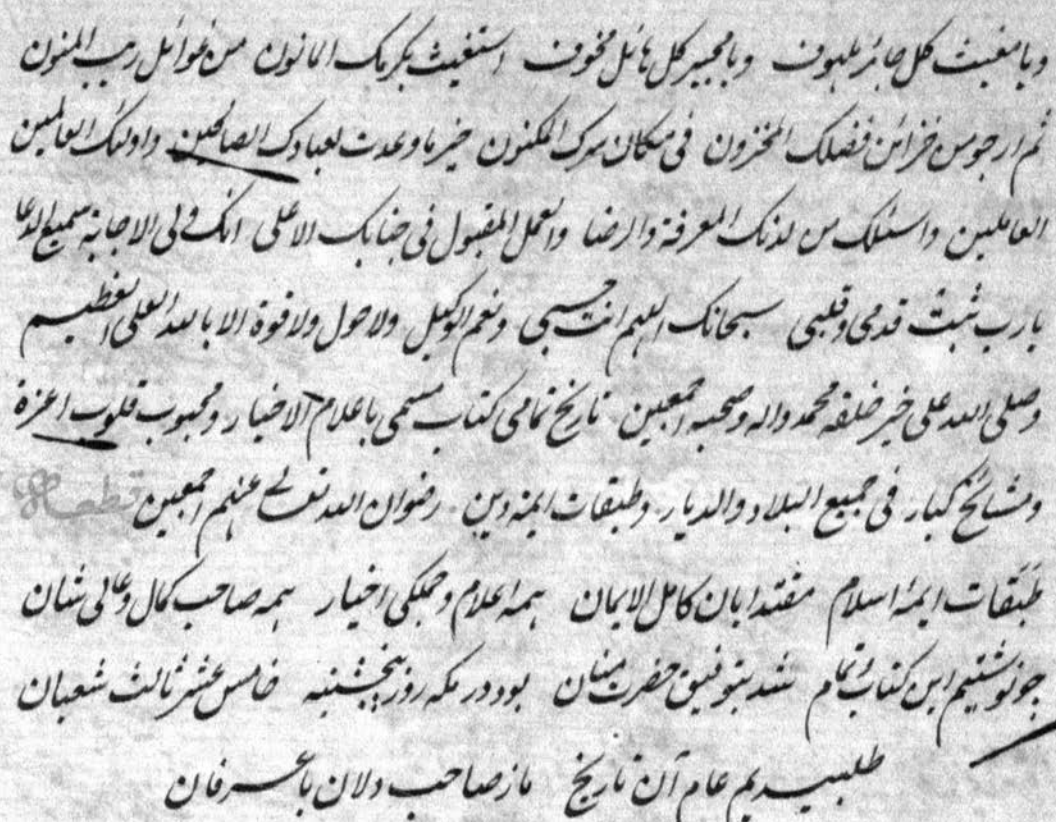 ویا مغیث کل حائر ملهوف ویا مجیر کل هائل مخوف استغیث بکرمک المأنون من غوائل ریب المنون
ثم ارجو من خزائن فضلک المخزون فی مکان سرک المکنون خیر ما وعدت لعبادک الصالحین واولئک العالمین
العاملین واسئلک من لدنک المعرفة والرضا والعمل المقبول فی جنابک الاعلی انک ولی الاجابة سمیع الدعا
یا رب ثبت قدمی وقلبی سبحانک اللهم انت حسبی ونعم الوکیل ولا حول ولا قوة الا بالله العلی العظیم
وصلی الله علی خیر خلقه محمد واله وصحبه اجمعین تاریخ تمامی کتاب مسمی باعلام الاخیار ومحبوب قلوب اعزة
ومشائخ کبار فی جمیع البلاد والدیار وطبقات ایمه دین رضوان الله تعالی عنهم اجمعین قطعه
طبقات ایمهٔ اسلام مقتدایان کامل الایمان همه اعلام وجملکی اخیار همه صاحب کمال وعالی شان
چونوشتیم این کتاب تمام شد بتوفیق حضرت منان بود در مکه روز پنجشنبه خامس عشر ثالث شعبان
طلبیدیم عام آن تاریخ ما ز صاحب دلان با عرفان